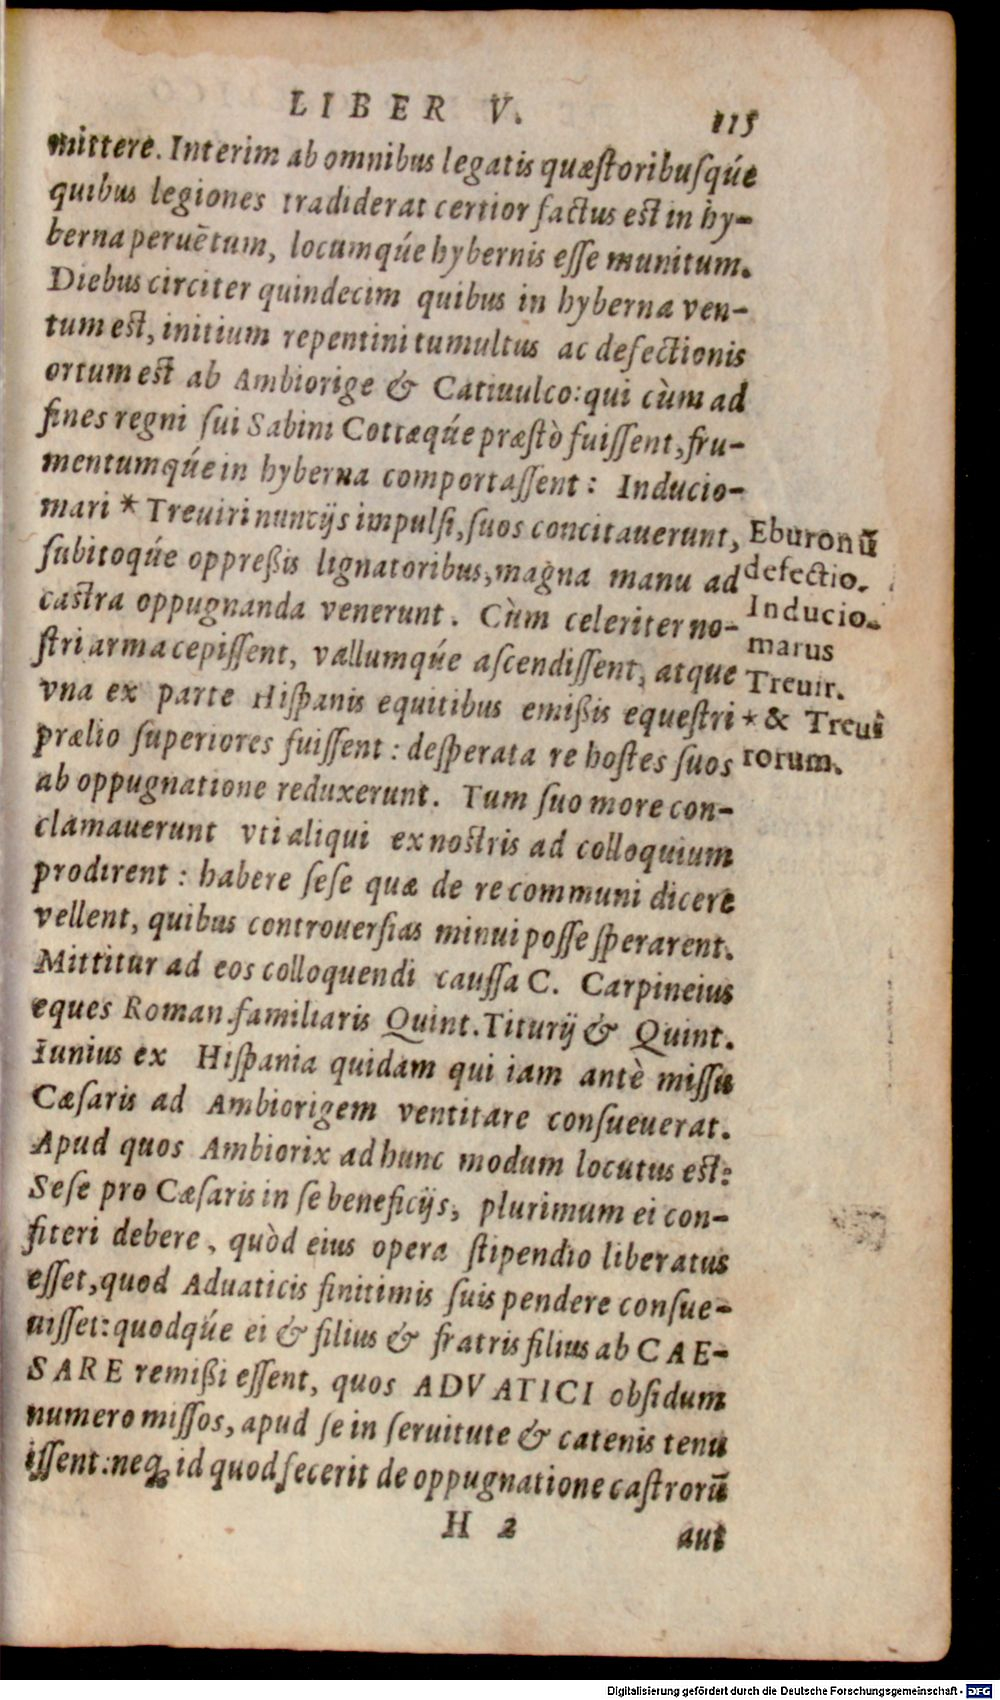 LIBER V.
115
mittere. Interim ab omnibus legatis quæſtoribuſqúe
quibus legiones tradiderat certior factus est in hy-
berna peruētum, locumqúe hybernis eſſe munitum.
Diebus circiter quindecim quibus in hyberna ven-
tum est, initium repentini tumultus ac defectionis
ortum est ab Ambiorige & Catiuulco: qui cùm ad
fines regni ſui Sabini Cottæqúe præſtò fuiſſent, fru-
mentumqúe in hyberna comportaſſent: Inducio-
mari * Treuiri nuncijs impulſi, ſuos concitauerunt,
ſubitoqúe oppreßis lignatoribus, magna manu ad
castra oppugnanda venerunt. Cùm celeriter no-
ſtri arma cepiſſent, vallumqúe aſcendiſſent, atque
vna ex parte Hiſpanis equitibus emißis equeſtri
prælio ſuperiores fuiſſent: deſperata re hoſtes ſuos
ab oppugnatione reduxerunt. Tum ſuo more con-
clamauerunt vti aliqui ex nostris ad colloquium
prodirent: habere ſeſe quæ de re communi dicere
vellent, quibus controuerſias minui poſſe ſperarent.
Mittitur ad eos colloquendi cauſſa C. Carpineius
eques Roman. familiaris Quint. Titurij & Quint.
Iunius ex Hiſpania quidam qui iam antè miſſu
Cæſaris ad Ambiorigem ventitare conſueuerat.
Apud quos Ambiorix ad hunc modum locutus est:
Seſe pro Cæſaris in ſe beneficijs, plurimum ei con-
fiteri debere, quòd eius opera ſtipendio liberatus
eſſet, quod Aduaticis finitimis ſuis pendere conſue-
uiſſet: quodqúe ei & filius & fratris filius ab CAE-
SARE remißi eſſent, quos ADVATICI obſidum
numero miſſos, apud ſe in ſeruitute & catenis tenu
iſſent: neq; id quod fecerit de oppugnatione caſtrorū
H 2
aut
Eburonū
defectio.
Inducio-
marus
Treuir.
* & Treuī
rorum.
Digitalisierung gefördert durch die Deutsche Forschungsgemeinschaft - DFG